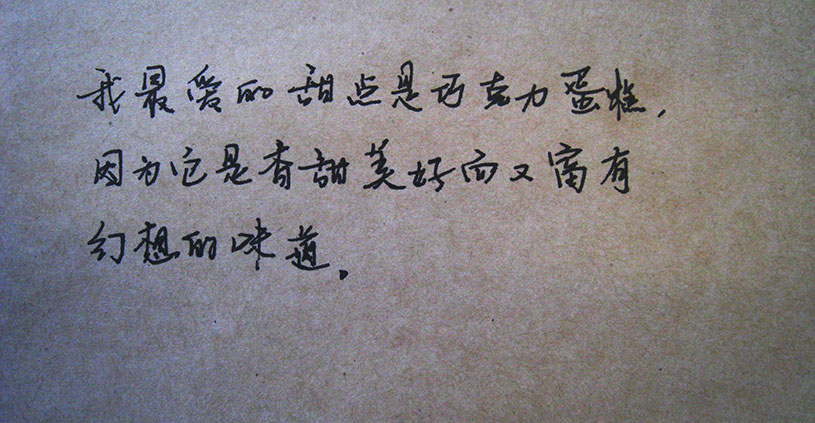 我最爱的甜点是巧克力蛋糕,
因为它是香甜美好而又富有
幻想的味道.